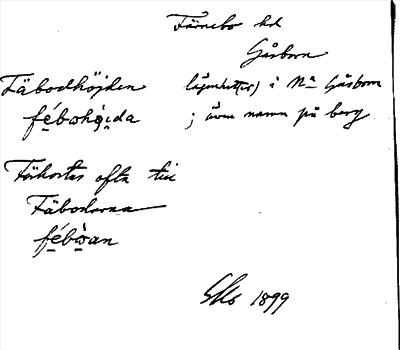 Färnebo hd
Gåsborn
Fäbodhöjden lägenhet(er) i Na Gåsborn
fębωhǫida ; även namn på berg
Förkortas ofta till
Fäbodarna
fębωan
1899